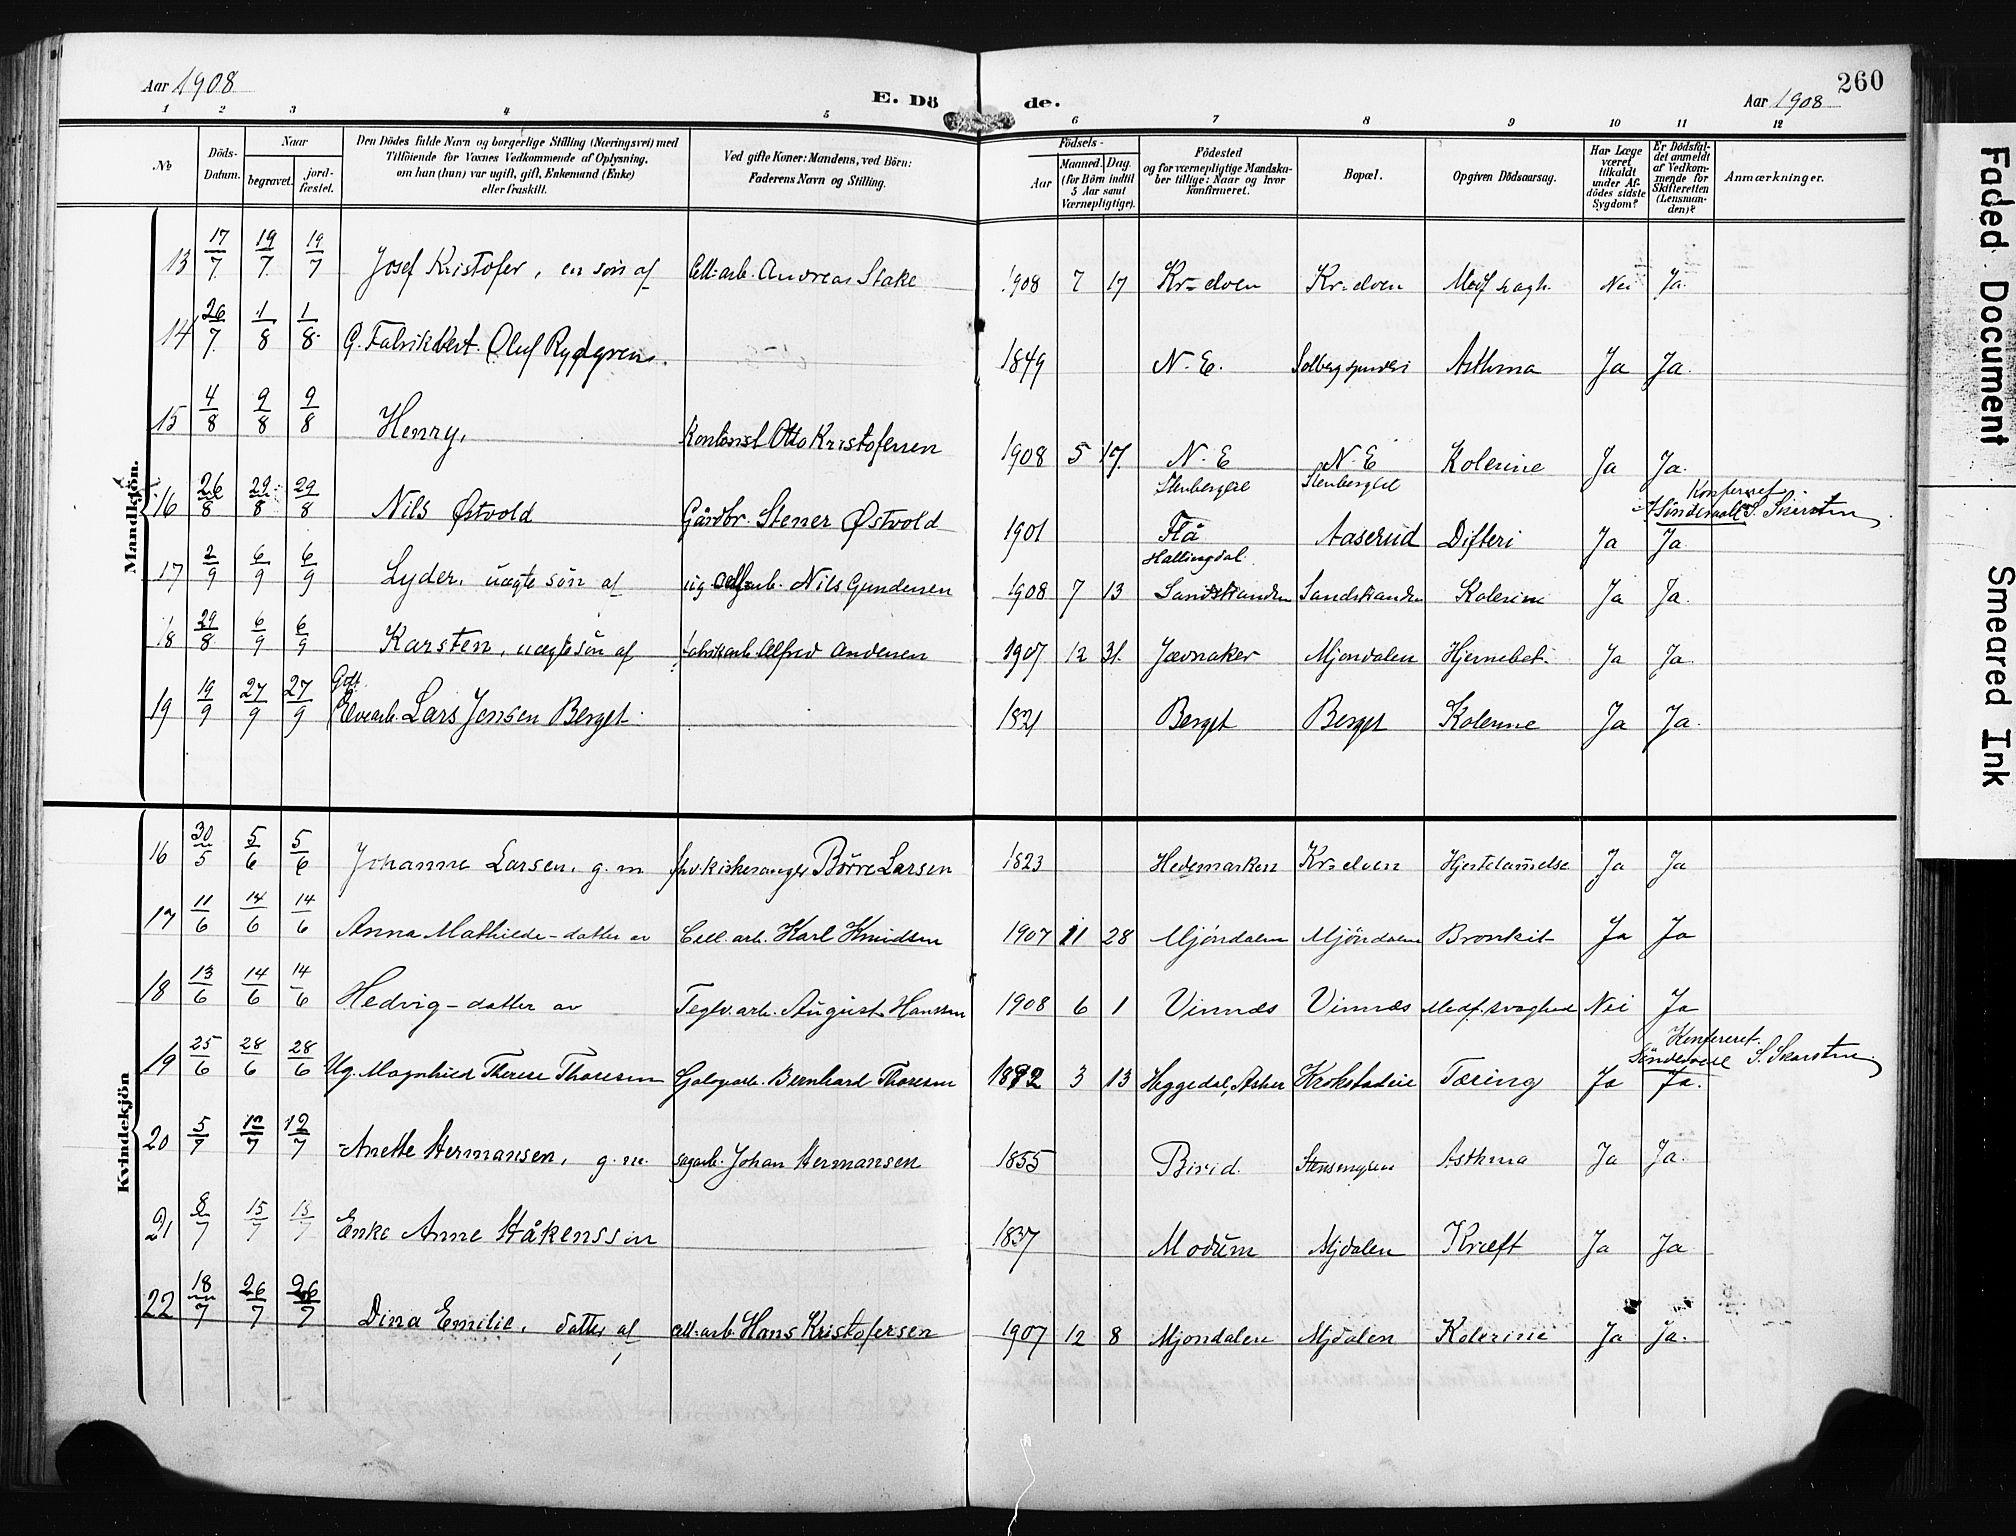 Aar 1908
E. Dö de.
Aar 1908
260
1 2 3 4 5 6 7 8 9 10 11 12
№
Döds-Datum.
Naar
begravet.
jord-fæstet.
Den Dödes fulde Navn og borgerlige Stilling (Næringsvei) med
Tilföiende for Voxnes Vedkommende af Oplysning,
om han (hun) var ugift, gift, Enkemand (Enke)
eller fraskilt.
Ved gifte Koner: Mandens, ved Börn:
Faderens Navn og Stilling.
Födsels-
Aar
Maaned. Dag.
(for Börn indtil
5 Aar samt
Værnepligtige).
Födested
og for værnepligtige Mandska-
ber tillige: Naar og hvor
konfirmeret.
Bopæl.
Opgiven Dödsaarsag.
Har Læge
været
tilkaldt
under Af-
dödes sidste
Sygdom?
Er Dödsfal-
det anmeldt
af Vedkom-
mende for
Skifteretten
(Lensman-
den)?
Anmærkninger.
Mandkjön.
13 17/7 19/7 19/7 Josef Kristofer, en søn af Cell-arb. Andreas Stake 1908 7 17 Kr-elven Kr-elven Medf. svagh. Nei Ja.
14 26/7 1/8 1/8 G. Oluf Rydgren. 1849 N. E. Solbergspinderi Asthma Ja Ja.
15 4/8 9/8 9/8 Henry, Kontorist Otto Kristofersen 1908 5 17 N. E N. E Kolerine Ja Ja.
Stenberglel Stenberglel
Konfereret.
S. Skarsten
16 26/8 29/8 29/8 Nils Østvold Gårdbr. Stener Østvold 1901 Flå Aaserud Difteri Ja Ja
Hallingdal.
17 2/9 6/9 6/9 Lyder, uægte søn af ug. cellarb. Nils Gundersen 1908 7 13 Sandstranden Sandstranden Kolerine Ja Ja.
18 29/8 6/9 6/9 Karsten, uægte søn af fabrikarb. Alfred Andersen 1907 12 31. Jævnaker Mjøndalen Hjernebet. Ja Ja.
19 19/9 27/9 27/9 Gift
Elvearb. Lars Jensen Berget. 1821 Berget Berget Kolerine Ja Ja.
Kvindekjön
16 30/5 5/6 5/6 Johanne Larsen, g. m. fhv. kirkesanger Børre Larsen 1823 Hedemarken Kr-elven Hjertelammelse Ja Ja
17 11/6 14/6 14/6 Anna Mathilde - datter av Cell. arb. Karl Knudsen 1907 11 28 Mjöndalen Mjöndalen Bronkit Ja Ja
18 13/6 14/6 14/6 Hedvig - datter av Teglv. arb. August Hanssen 1908 6 1 Vinnæs Vinnæs Medf. svaghed Nei Ja
Konfereret.
S. Skarsten.
19 25/6 28/6 28/6 Ug. Magnhild Therese Thoresen Bernhard Thoresen 1892 3 13 Heggedal, Asker Krokstadeie Tæring Ja Ja.
20 5/7 12/7 12/7 Anette Hermansen, g. m. sagarb. Johan Hermansen 1855 Birid Asthma Ja Ja.
21 8/7 15/7 15/7 Enke Anne Håkenssen 1837 Modum Mjdalen Kræft Ja Ja
22 18/7 26/7 26/7 Dina Emilie, datter af cell-arb. Hans Kristofersen 1907 12 8 Mjøndalen Mjdalen Kolerine Ja Ja.
Faded Document
Smeared Ink